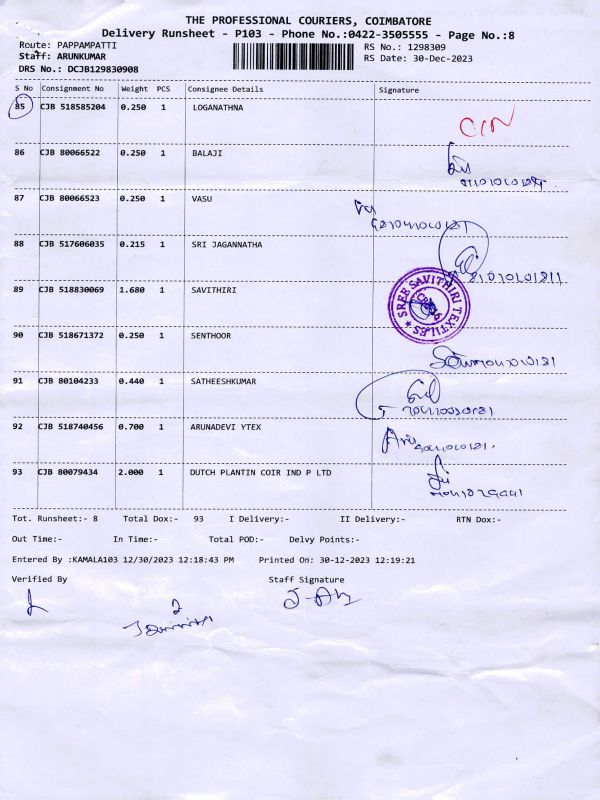 THE PROFESSIONAL COURIERS, COIMBATORE
Delivery Runsheet - P103 - Phone No.:0422-3505555 - Page No.:8
Route: PAPPAMPATTI
RS No.: 1298309
Staff: ARUNKUMAR
RS Date: 30-Dec-2023
DRS No.: DCJB129830908
S No Consignment No Weight PCS Consignee Details Signature
85 CJB 518585204 0.250 1 LOGANATHNA
86 CJB 80066522 0.250 1 BALAJI
87 CJB 80066523 0.250 1 VASU
88 CJB 517606035 0.215 1 SRI JAGANNATHA
89 CJB 518830069 1.680 1 SAVITHIRI
SREE SAVITHIRI TEXTILES
90 CJB 518671372 0.250 1 SENTHOOR
91 CJB 80104233 0.440 1 SATHEESHKUMAR
92 CJB 518740456 0.700 1 ARUNADEVI YTEX
93 CJB 80079434 2.000 1 DUTCH PLANTIN COIR IND P LTD
Tot. Runsheet:- 8 Total Dox:- 93 I Delivery:- II Delivery:- RTN Dox:-
Out Time:- In Time:- Total POD:- Delvy Points:-
Entered By :KAMALA103 12/30/2023 12:18:43 PM Printed On: 30-12-2023 12:19:21
Verified By Staff Signature